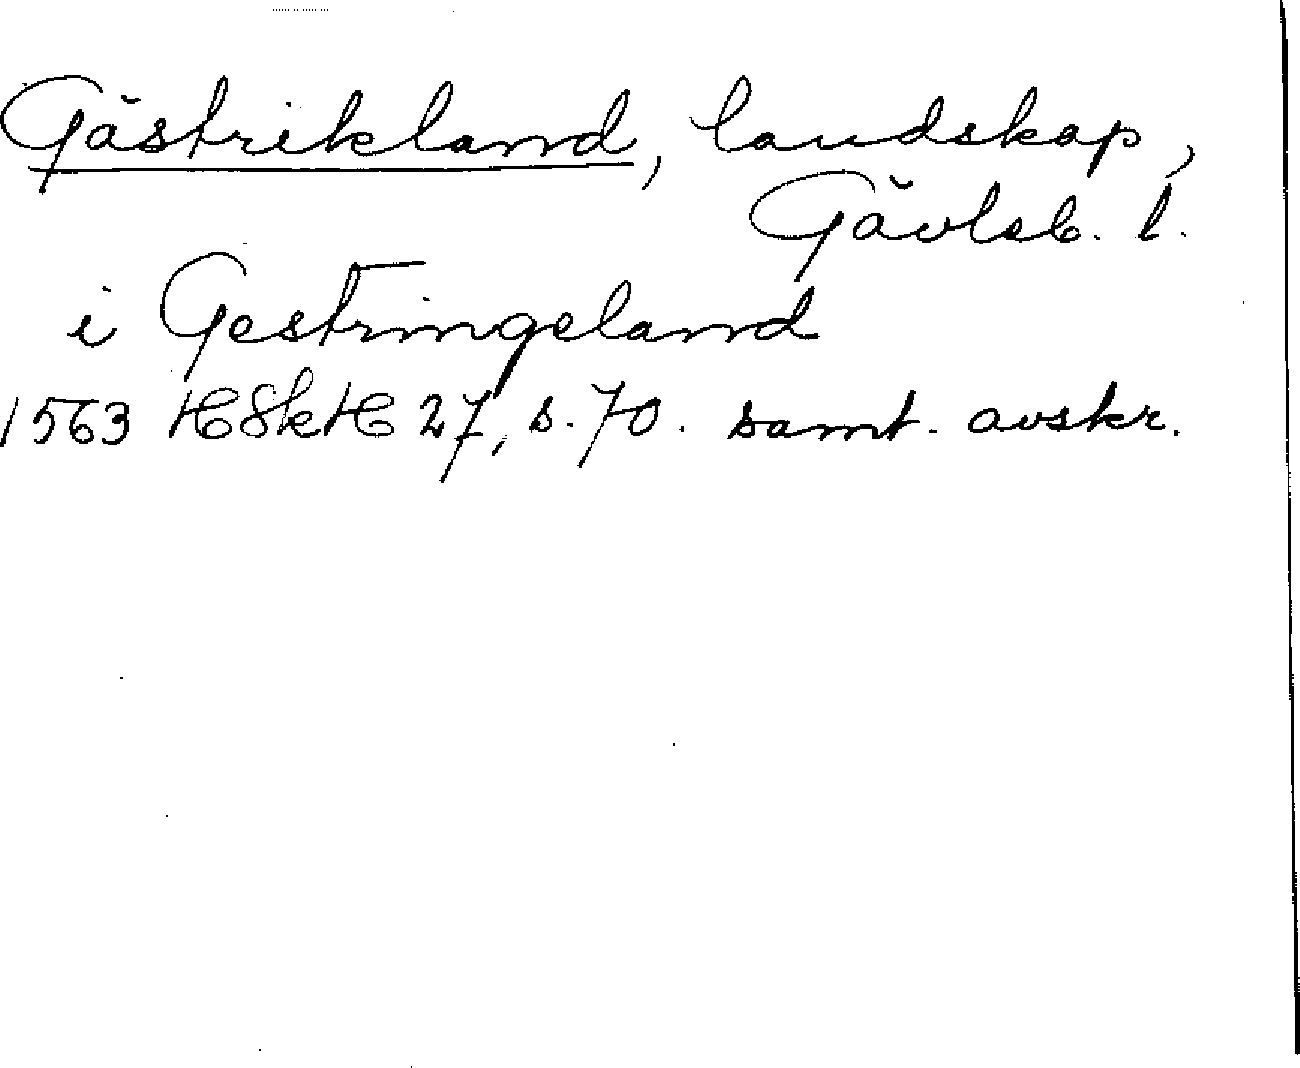 Gästrikland, landskap,
Gävlsb. l.
i Gestringeland
1563 HSkH 27, s. 70. samt. avskr.